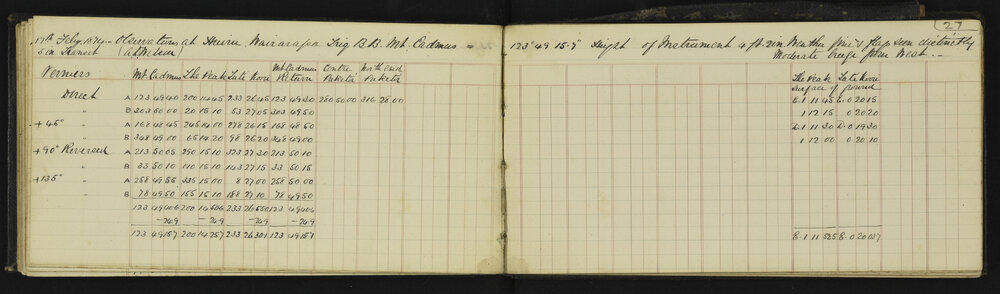 27
17th Feby. 1874 - Observations at Hiwiu Wairarapa Trig B.B. Mt. Cadmus = 123° 49' 15.7" Height of Instrument 4 ft. 2 in Weather fine & flags seen distinctly
5 in Transit Moderate breeze from West. -
Verniers Mt. Cadmus The Peak Late Kore Mt Cadmus Return Centre Puketa North end Puketa The Peak Late Kore
Surface of ground
Direct A 123 49 40 200 14 45 233 26 45 123 49 30 280 50 00 316 28 00 E. 1 11 45 E. 0 20 15
" B 303 50 00 20 15 10 53 27 05 303 49 50 1 12 15 0 20 20
+ 45° A 168 48 45 245 14 00 278 26 15 168 48 50 D. 1 11 30 D. 0 19 30
" B 348 49 00 65 14 20 98 26 20 348 49 00 1 12 00 0 20 10
+ 90° Reversed A 213 50 05 290 15 10 323 27 30 213 50 10
" B 33 50 10 110 15 10 143 27 15 33 50 15
+ 135° A 258 49 55 335 15 00 8 27 00 258 50 00
" B 78 49 50 155 15 10 188 27 10 78 49 50
123 49 40.6 200 14 50.6 233 26 55.0 123 49 40.6
- 24.9 - 24.9 - 24.9 - 24.9
123 49 15.7 200 14 25.7 233 26 30.1 123 49 15.7 E. 1 11 52.5 E. 0 20 03.7